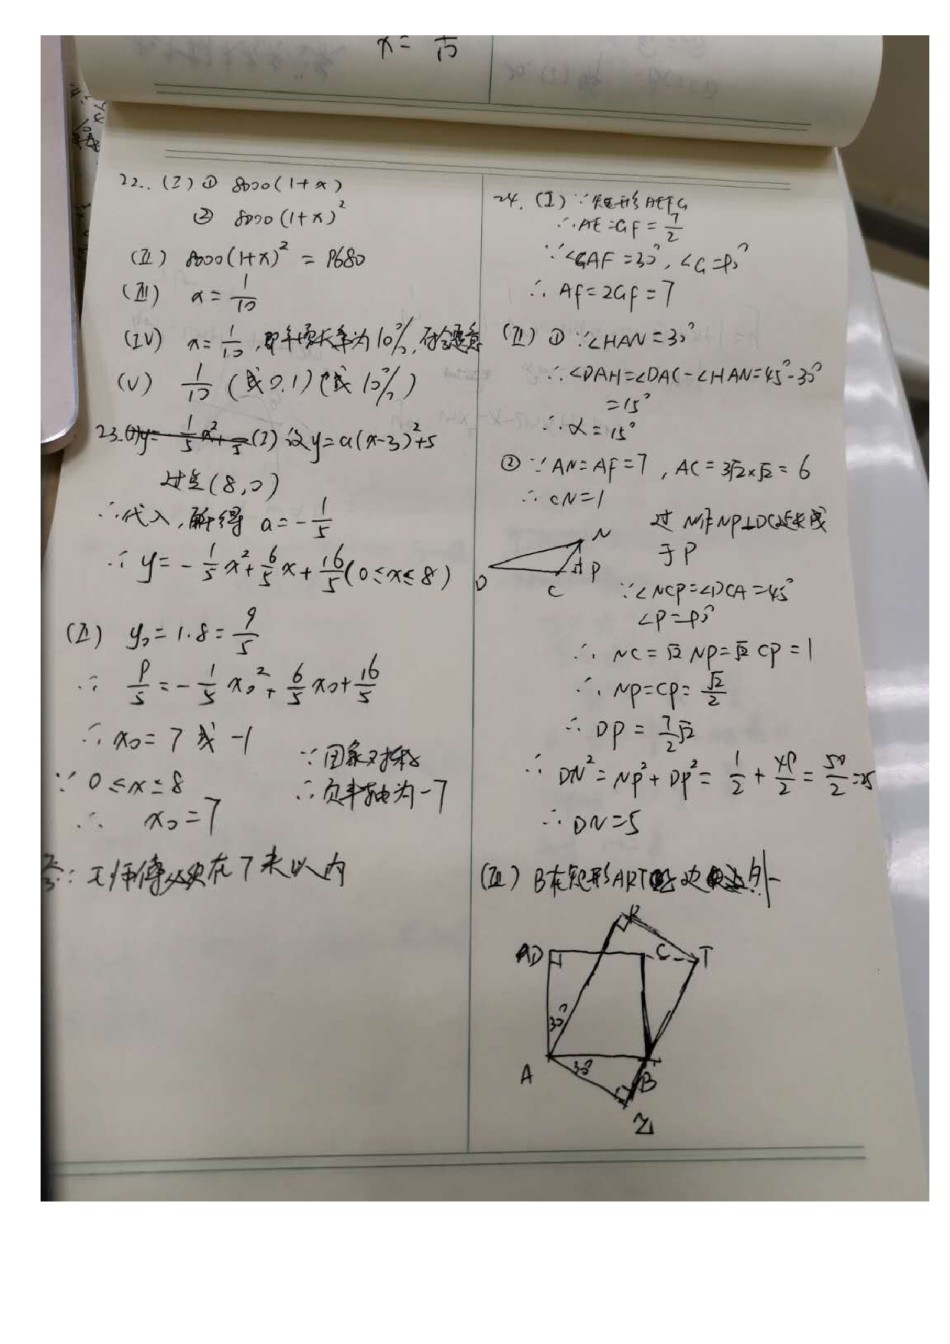 x = 1/10
22. (I) ① 8000(1+x)
② 8000(1+x)²
(II) 8000(1+x)² = 9680
(III) x = 1/10
(IV) x = 1/10, 即年增长率为10%, 符合题意
(V) 1/10 (或0.1) (或10%)
23. (I) 设y=a(x-3)²+5
过点(8,0)
∴代入,解得 a=-1/5
∴ y=-1/5x²+6/5x+16/5(0≤x≤8)
(II) y₀=1.8=9/5
∴ 9/5=-1/5x₀²+6/5x₀+16/5
∴ x₀=7或-1
∵ 0≤x≤8
∴ x₀=7
∵图象对称
∴负半轴为-7
答: 王师傅必须在7米以内
24. (I) ∵矩形AEFG
∴AE=GF=7/2
∵∠GAF=30°, ∠G=90°
∴ AF=2GF=7
(II) ① ∵∠HAN=30°
∴∠DAH=∠DAC-∠HAN=45°-30°
=15°
∴ α=15°
② ∵ AN=AF=7, AC=3√2×√2=6
∴ CN=1
过N作NP⊥DC延长线
于P
N
D C P
∵∠NCP=∠DCA=45°
∠P=90°
∴ NC=√2NP=√2CP=1
∴ NP=CP=√2/2
∴ DP=7/2√2
∴ DN²=NP²+DP²=1/2+49/2=50/2=25
∴ DN=5
(III) B在矩形ART边外
R
D C T
30°
A 30° B
Z